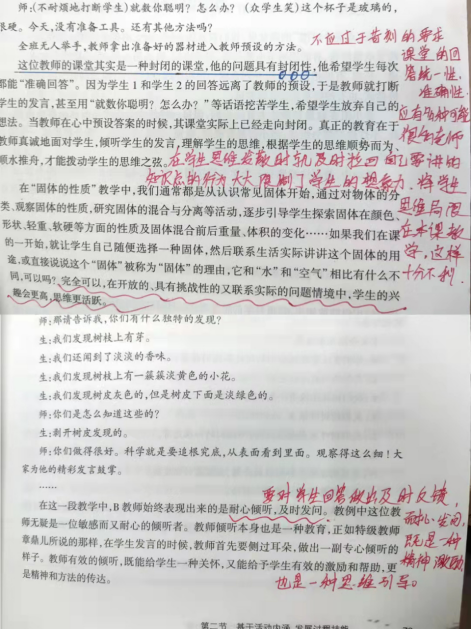 师:(不耐烦地打断学生)就数你聪明?怎么办?(众学生笑)这个杯子是玻璃的,
很硬。今天,没有准备工具。还有其他方法吗?
全班无人举手,教师拿出准备好的器材进入教师预设的方法。
这位教师的课堂其实是一种封闭的课堂,他的问题具有封闭性,他希望学生每次
都能“准确回答”。因为学生1和学生2的回答远离了教师的预设,于是教师就打断
学生的发言,甚至用“就数你聪明?怎么办?”等话语挖苦学生,希望学生放弃自己的
想法。当教师在心中预设答案的时候,其课堂实际上已经走向封闭。真正的教育在于
教师真诚地面对学生,倾听学生的发言,理解学生的思维,根据学生的思维顺势而为、
顺水推舟,才能拨动学生的思维之弦。
不应过于苛刻的要求
课堂的回
答统一性,
准确性。
应有各种可能
很多老师
在学生思维发散时就及时拉回自己要讲的
知识点的行为大大限制了学生的想象力,将学生
思维局限
在本课教
学,这样
十分不利。
在“固体的性质”教学中,我们通常都是从认识常见固体开始,通过对物体的分
类、观察固体的性质,研究固体的混合与分离等活动,逐步引导学生探索固体在颜色、
形状、轻重、软硬等方面的性质及固体混合前后重量、体积的变化……如果我们在课
的一开始,就让学生自己随便选择一种固体,然后联系生活实际讲讲这个固体的用
途,或直接说说这个“固体”被称为“固体”的理由,它和“水”和“空气”相比有什么不
同,可以吗?完全可以,在开放的、具有挑战性的又联系实际的问题情境中,学生的兴
趣会更高,思维更活跃。
师:那请告诉我,你们有什么独特的发现?
生:我们发现树枝上有芽。
生:我们还闻到了淡淡的香味。
生:我们发现树枝上有一簇簇淡黄色的小花。
生:我们发现树皮灰色的,但是树皮下面是淡绿色的。
师:你们是怎么知道这些的?
生:剥开树皮发现的。
师:你们做得很好。科学就是要追根究底,从表面看到里面。观察得这么细!大
家为他的精彩发言鼓掌。
……
要对学生回答做出及时反馈,
耐心、发问,
既是一种
精神激励
也是一种思维引导。
在这一段教学中,B教师始终表现出来的是耐心倾听,及时发问。教例中这位教
师无疑是一位敏感而又耐心的倾听者。教师倾听本身也是一种教育,正如特级教师
章鼎儿所说的那样,在学生发言的时候,教师首先要侧过耳朵,做出一副专心倾听的
样子。教师有效的倾听,既能给学生一种关怀,又能给予学生有效的激励和帮助,更
是精神和方法的传达。
第二节 基于活动内涵 发展过程技能